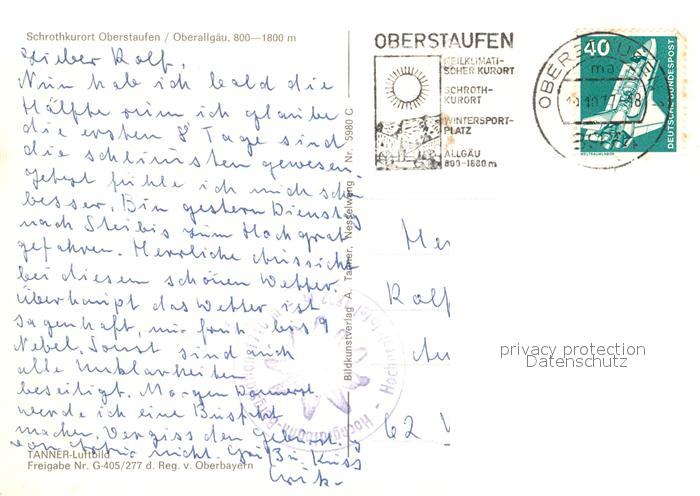 Schrothkurort Oberstaufen / Oberallgäu, 800—1800 m
Lieber Rolf,
Nun hab ich bald die
Hälfte rum ich glaube
die ersten 8 Tage sind
die schlimsten gewesen.
Jetzt fühle ich mich schon
besser. Bin gestern Dienstag
nach Steibis zum Hochgrat
gefahren. Herrliche Aussicht
bei diesem schönen Wetter.
Überhaupt das Wetter ist
sagenhaft, nur früh bis 9
Nebel. Sonst sind auch
alle Unklarheiten
beseitigt. Morgen Donnerst.
werde ich eine Busfahrt
machen. Vergiss den Geburtstg
von nicht. Gruß u Kuss
TANNER-Luftbild
Freigabe Nr. G-405/277 d. Reg. v. Oberbayern
Bildkunstverlag A. Tanner, Nesselwang Nr. 5980 C
OBERSTAUFEN
HEILKLIMATI-
SCHER KURORT
SCHROTH-
KURORT
WINTERSPORT-
PLATZ
ALLGÄU
800-1880 m
40
DEUTSCHE BUNDESPOST
WELTRAUMLABOR
Rolf
62
privacy protection
Datenschutz